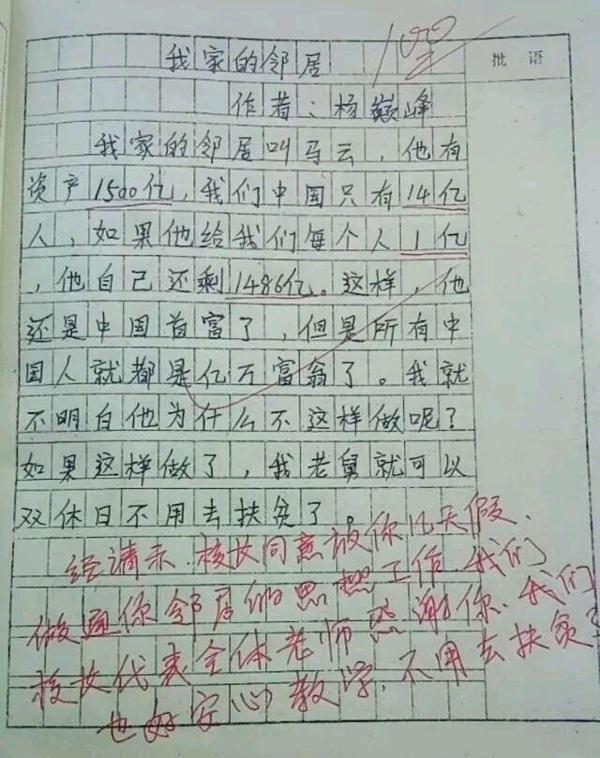 100
批语
我家的邻居
作者：杨巅峰
我家的邻居叫马云，他有
资产1500亿，我们中国只有14亿
人，如果他给我们每个人1亿
，他自己还剩1486亿。这样，他
还是中国首富了，但是所有中
国人就都是亿万富翁了。我就
不明白他为什么不这样做呢？
如果这样做了，我老舅就可以
双休日不用去扶贫了。
经请示、校长同意放你几天假、
做通你邻居的思想工作、我们
校长代表全体老师感谢你、我们
也好安心教学，不用去扶贫了